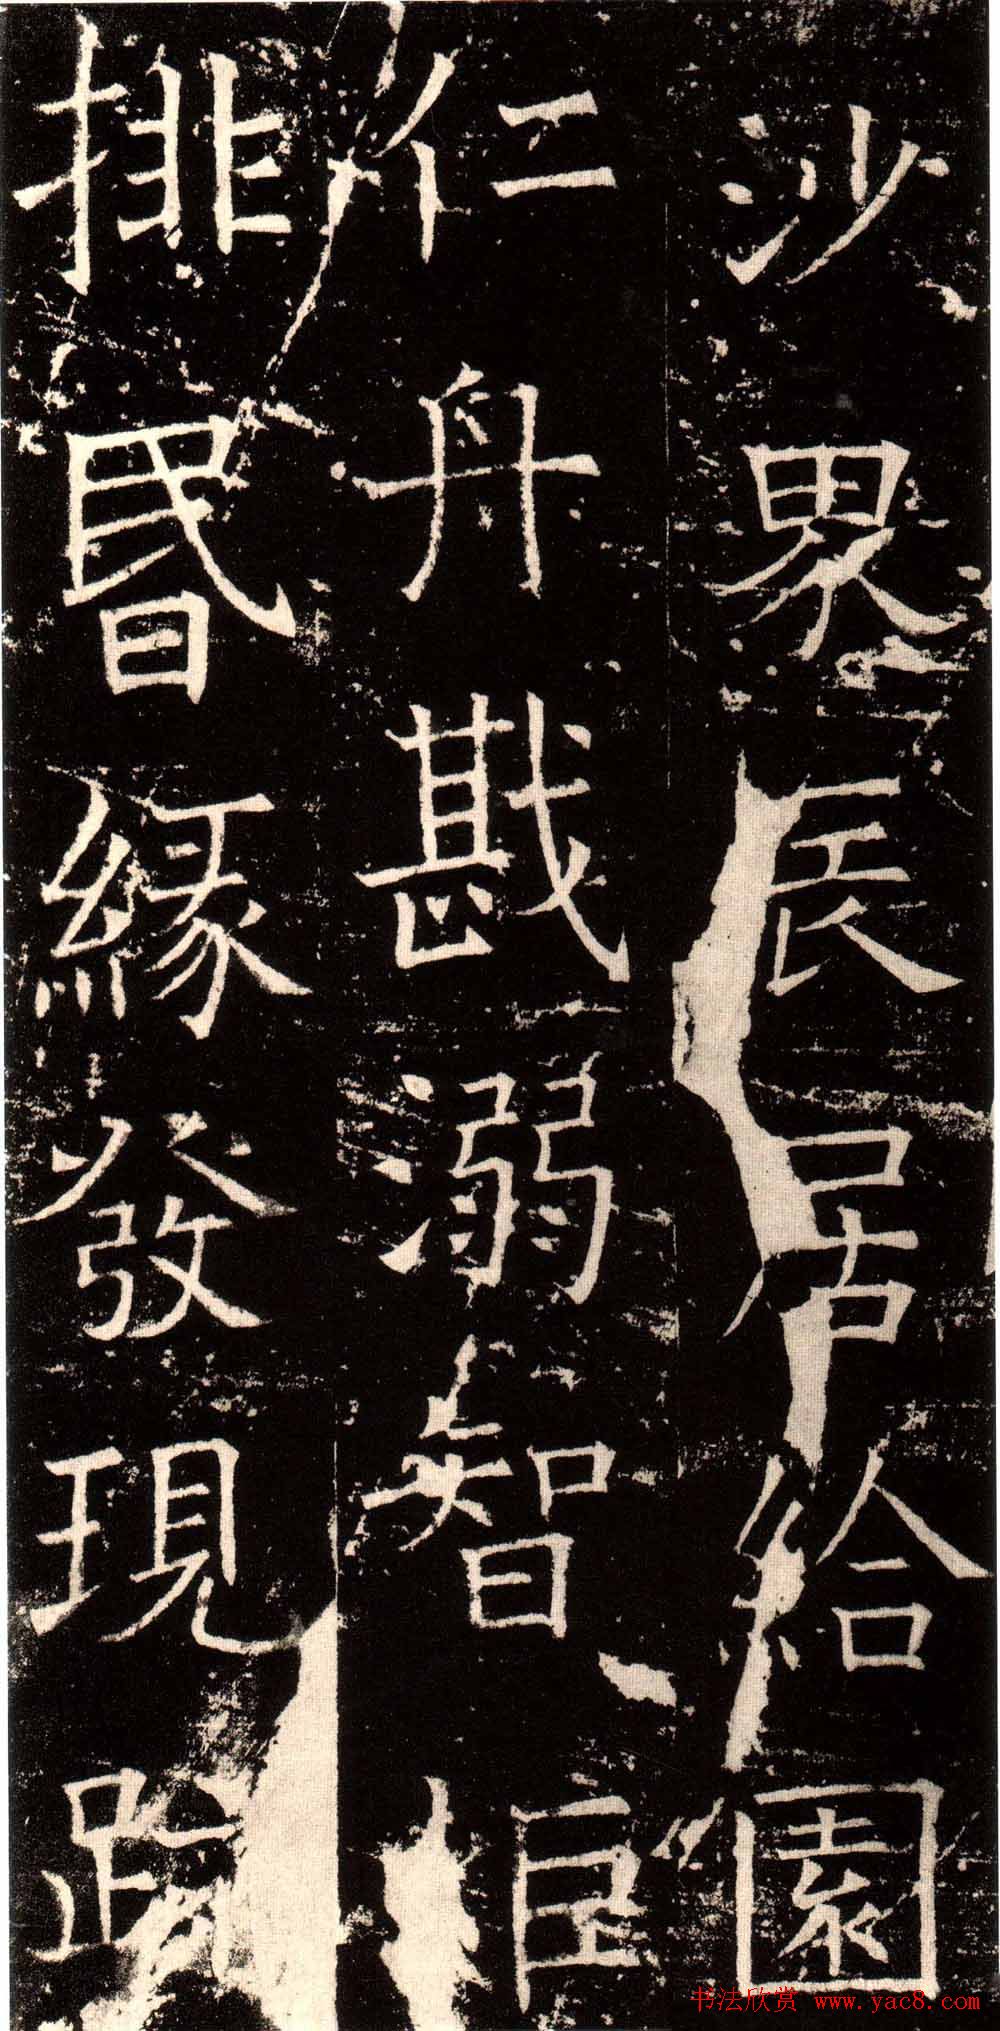 沙界長居給園
仁舟戡溺智炬
排昬緣發現跡
书法欣赏 www.yac8.com